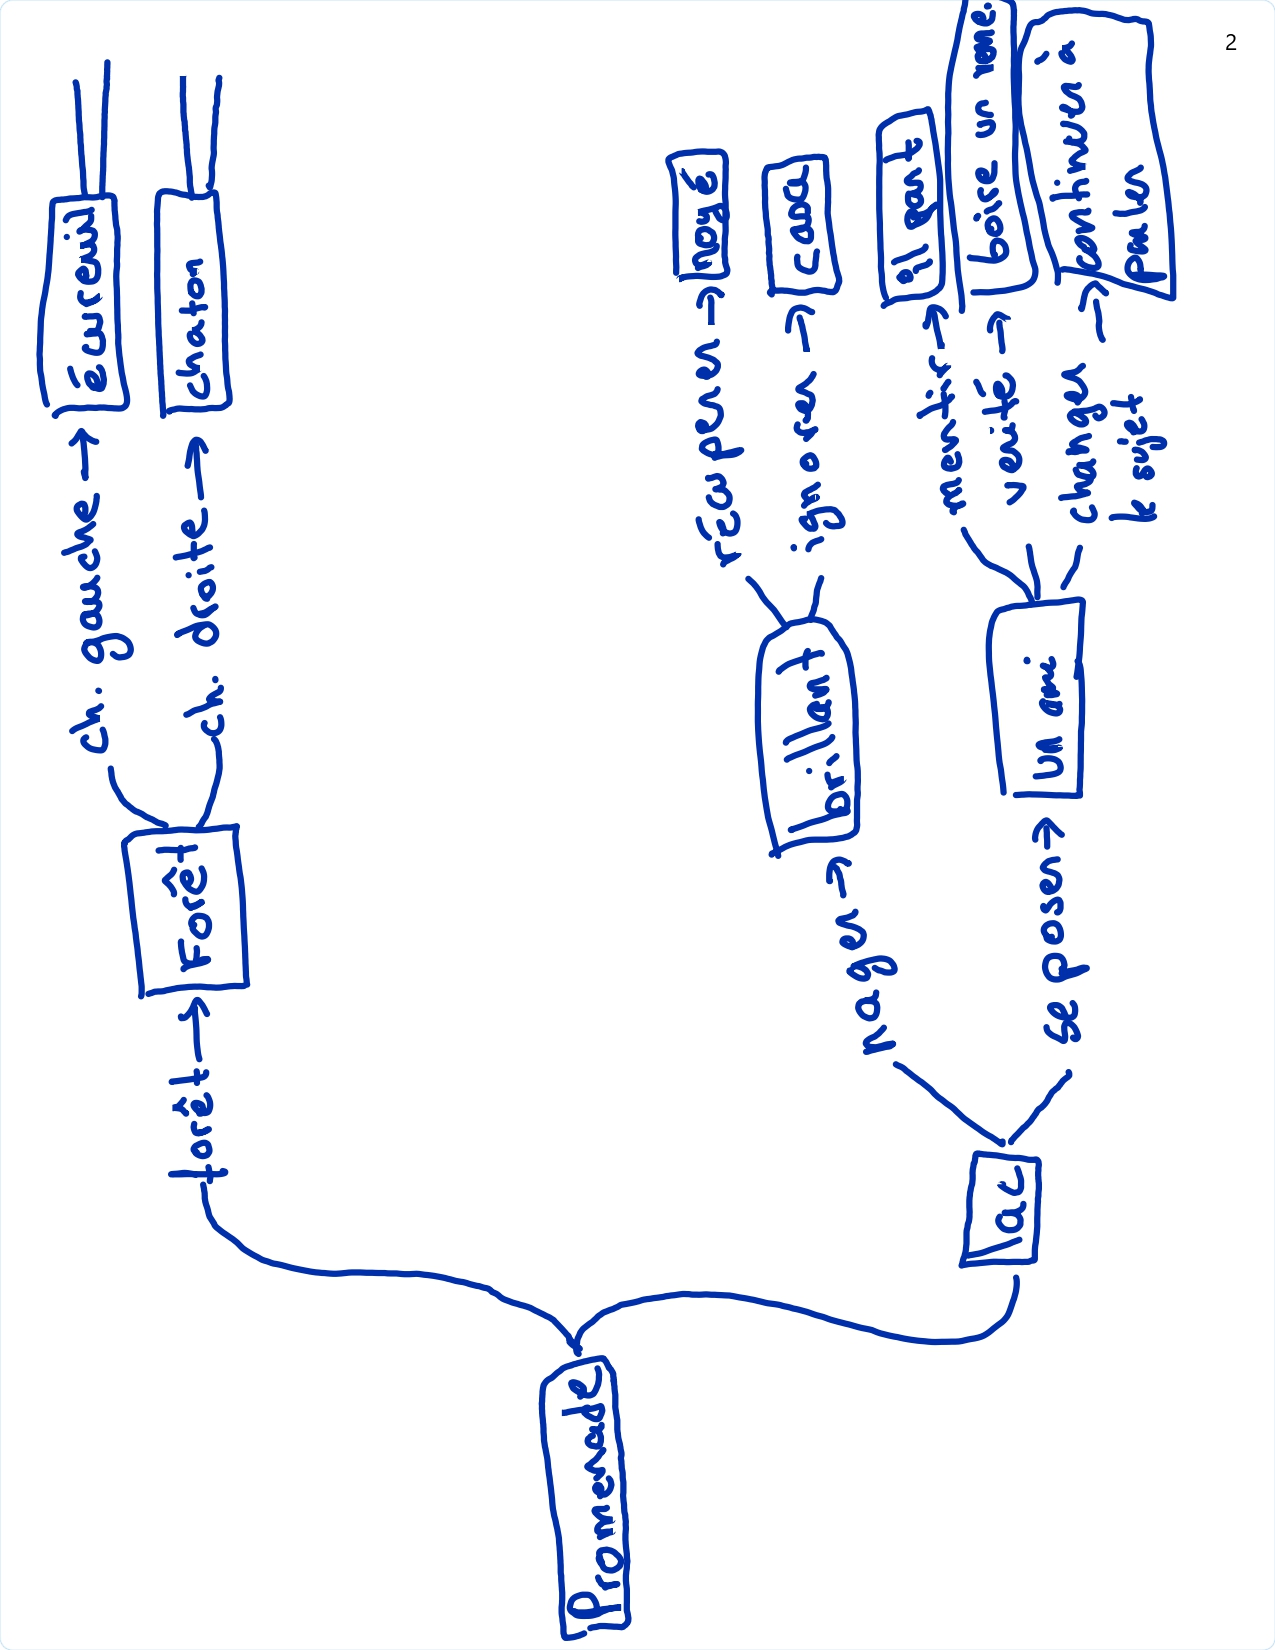 2
Promenade
forêt
Forêt
ch. gauche
Écureuil
ch. droite
chaton
lac
nager
brillant
récuperer
noyé
ignorer
se poser
un ami
mentir
il part
verité
boire un
changer
le sujet
continuer à
parler